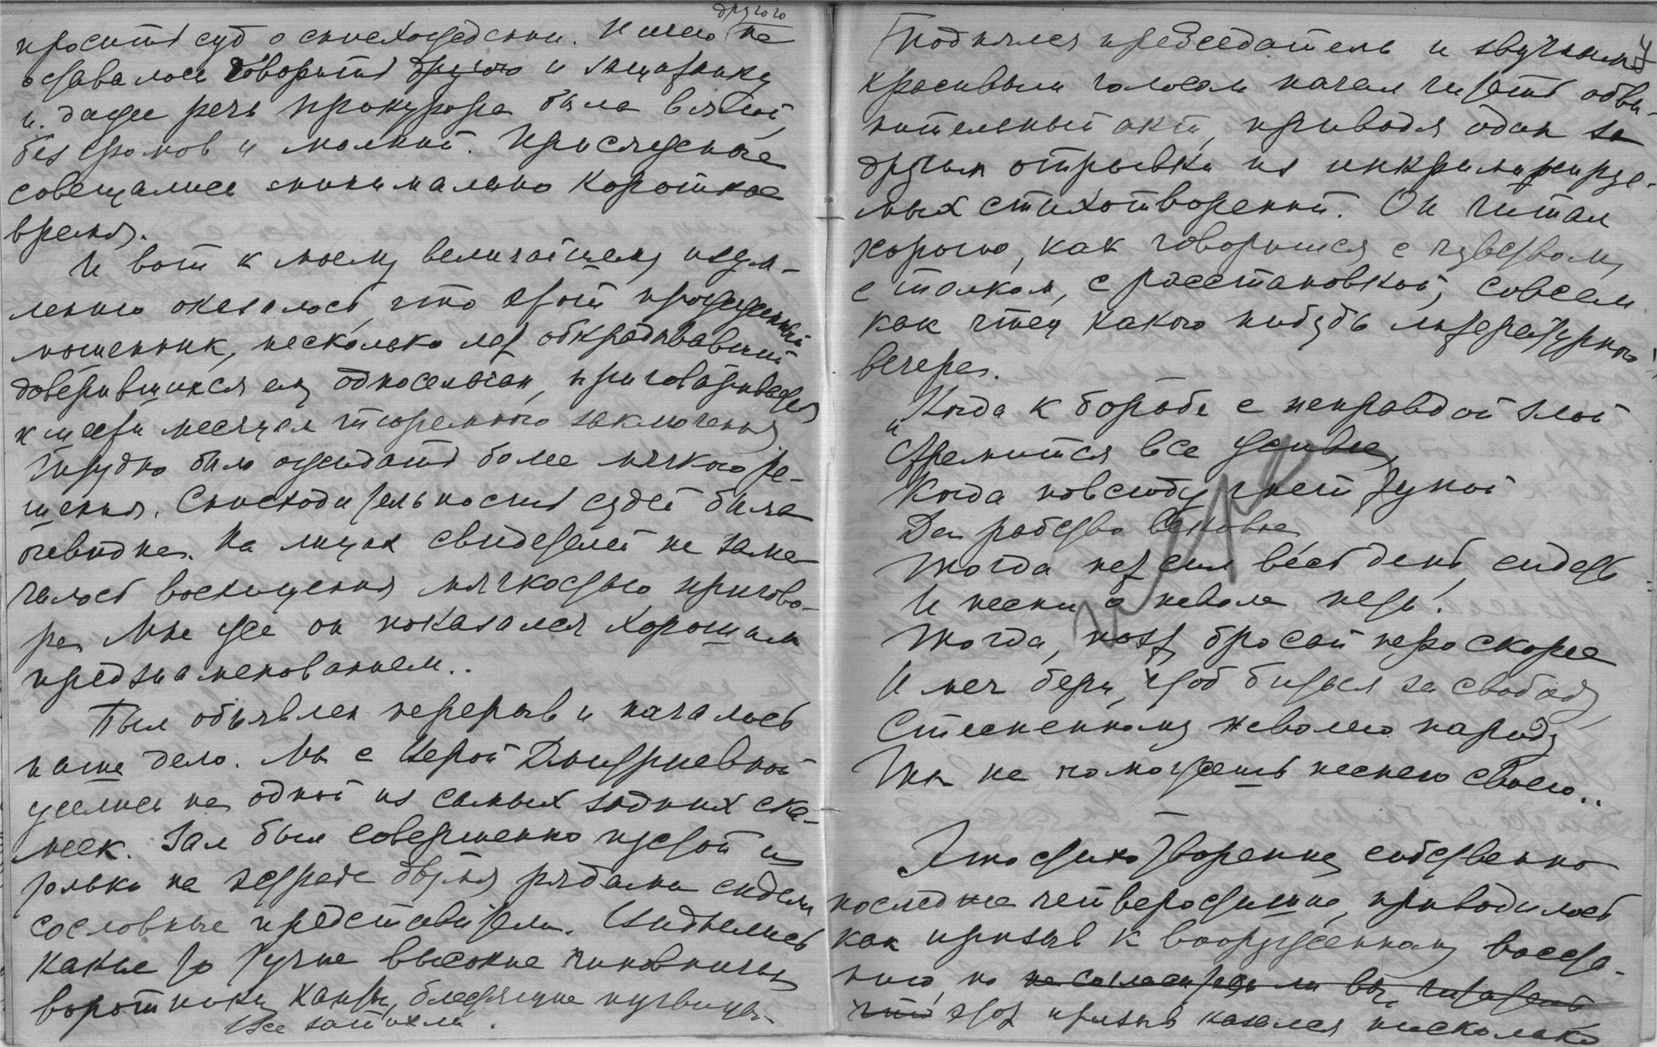 другого
просить суд о снисхождении. Ничего не
оставалось говорить другого и защитнику
и даже речь прокурора была вялой,
без громов и молний. Присяжные
совещались минимально короткое
время.
И вот к моему величайшему изум-
лению оказалось, что этот прожженный
мошенник, несколько лет обкрадывавший
доверившихся ему односельчан, приговаривается
к шести месяцам тюремного заключения
Трудно было ожидать более мягкого ре-
шения. Снисходительность судей была
очевидна. На лицах свидетелей не заме-
чалось восхищения мягкостью пригово-
ра, мне же он показался хорошим
предзнаменованием..
Был объявлен перерыв и началось
наше дело. Мы с Верой Дмитриевной
уселись на одной из самых задних ска-
меек. Зал был совершенно пустой и
только на эстраде двумя рядами сидели
сословные представители. Виднелись
какие то тучные высокие чиновничьи
воротники, канты, блестящие пуговицы.
Все затихли.
Поднялся председатель и звучным
красивым голосом начал читать обви-
нительный акт, приводя один за
другим отрывки из инкриминируе-
мых стихотворений. Он читал
хорошо, как говорится с чувством,
с толком, с расстановкой, совсем
как чтец какого нибудь литературного
вечера.
„Когда к борьбе с неправдой злой
Стремится все живое,
Когда повсюду гнет тупой
Да рабство вековое
Тогда нет сил весь день сидеть
И песни о неволе петь!
Тогда, поэт, бросай перо скорее
И меч бери, чтоб биться за свободу,
Стесненному неволею народу
Ты не поможешь песнею своею..
Это стихотворение, собственно
последнее четверостишие, приводилось
как призыв к вооруженному восста-
нию, но не согласитесь ли вы, читатель
что этот призыв казался несколько